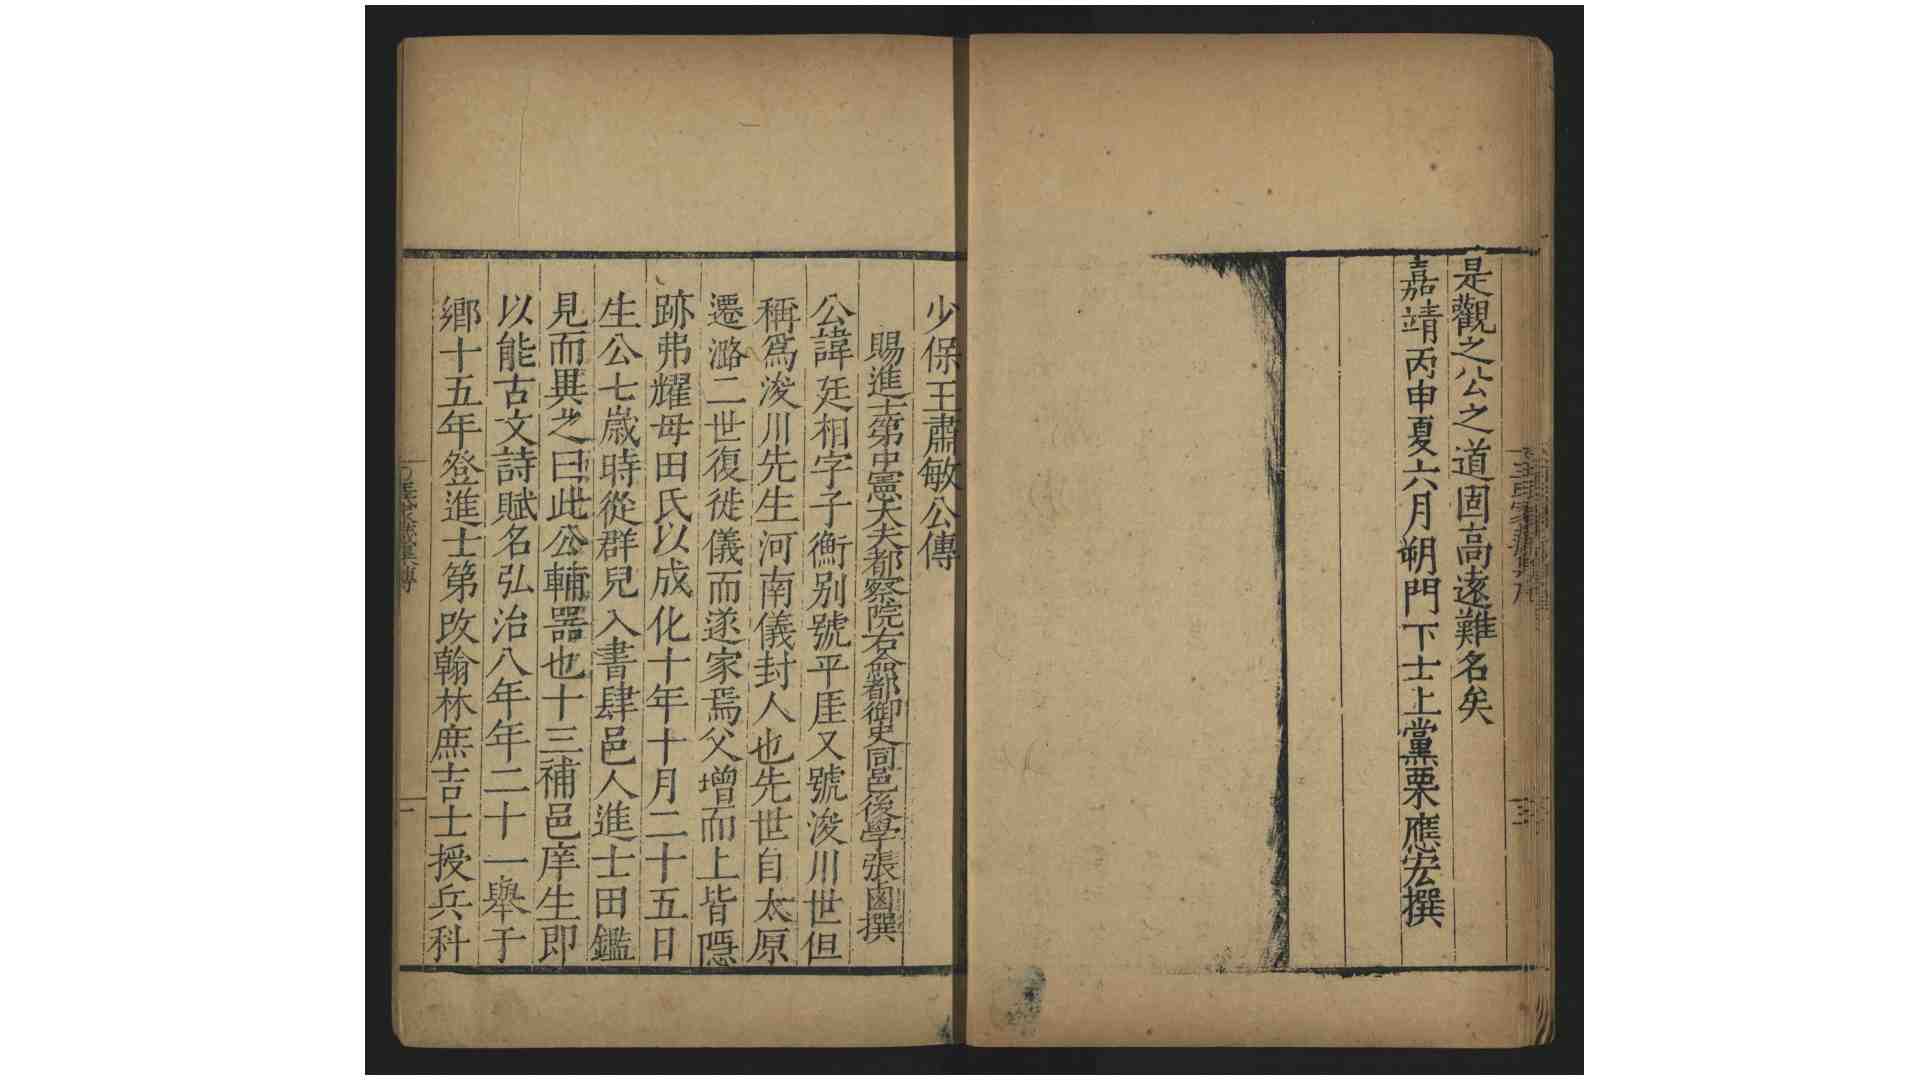 是觀之公之道固高遠難名矣
嘉靖丙申夏六月朔門下士上黨栗應宏撰
三
少保王肅敏公傳
賜進士第中憲大夫都察院右僉都御史同邑後學張鹵撰
公諱廷相字子衡别號平厓又號浚川世但
稱爲浚川先生河南儀封人也先世自太原
遷潞二世復徙儀而遂家焉父增而上皆隱
跡弗耀母田氏以成化十年十月二十五日
生公七歲時從群兒入書肆邑人進士田鑑
見而異之曰此公輔器也十三補邑庠生即
以能古文詩賦名弘治八年年二十一舉于
鄉十五年登進士第改翰林庶吉士授兵科
家藏集傳
一